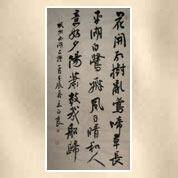 花開紅樹亂鶯啼草長
平湖白鷺飛風日晴和人
意好夕陽簫鼓幾船歸